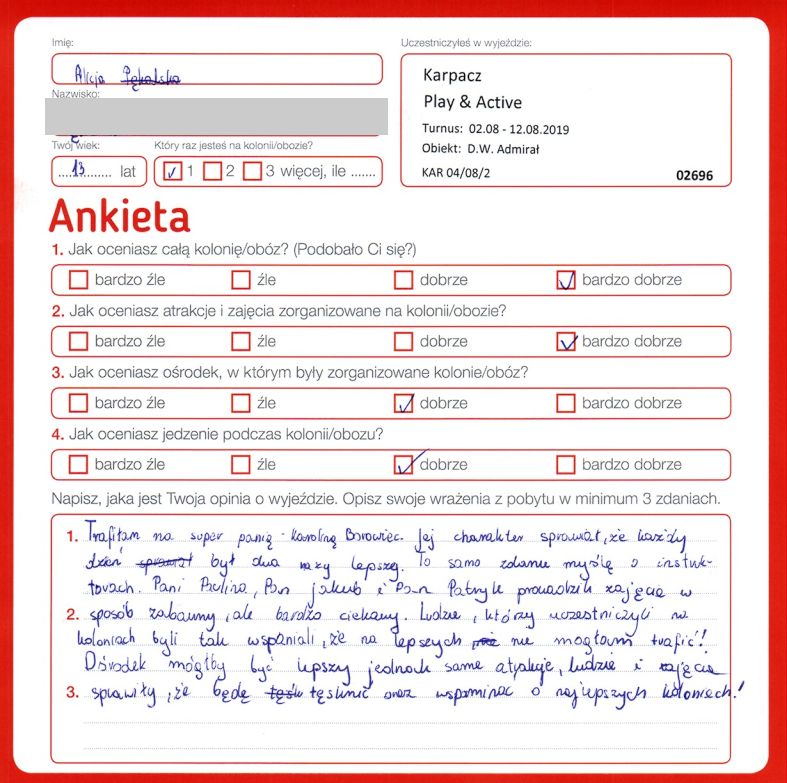 Imię:
Uczestniczyłeś w wyjeździe:
Alicja
Karpacz
Play & Active
Nazwisko:
Turnus: 02.08 - 12.08.2019
Obiekt: D.W. Admirał
KAR 04/08/2 02696
Twój wiek:
Który raz jesteś na kolonii/obozie?
....13........ lat
1 2 3 więcej, ile .......
Ankieta
1. Jak oceniasz całą kolonię/obóz? (Podobało Ci się?)
bardzo źle źle dobrze bardzo dobrze
2. Jak oceniasz atrakcje i zajęcia zorganizowane na kolonii/obozie?
bardzo źle źle dobrze bardzo dobrze
3. Jak oceniasz ośrodek, w którym były zorganizowane kolonie/obóz?
bardzo źle źle dobrze bardzo dobrze
4. Jak oceniasz jedzenie podczas kolonii/obozu?
bardzo źle źle dobrze bardzo dobrze
Napisz, jaka jest Twoja opinia o wyjeździe. Opisz swoje wrażenia z pobytu w minimum 3 zdaniach.
1. Trafiłam na super panią - Karolinę Borowiec. Jej charakter sprawiał, że każdy
dzień był dwa razy lepszy. To samo zdanie myślę o instuk-
torach. Pani Paulina, Pan Jakub i Pan Patryk prowadzili zajęcia w
2. sposób zabawny, ale bardzo ciekawy. Ludzie, którzy uczestniczyli na
koloniach byli tak wspaniali, że na lepszych nie mogłam trafić!
Ośrodek mógłby być lepszy jednak same atrakcje, ludzie i zajęcia
3. sprawiły, że będę tęsknić oraz wspominać o najlepszych koloniach!